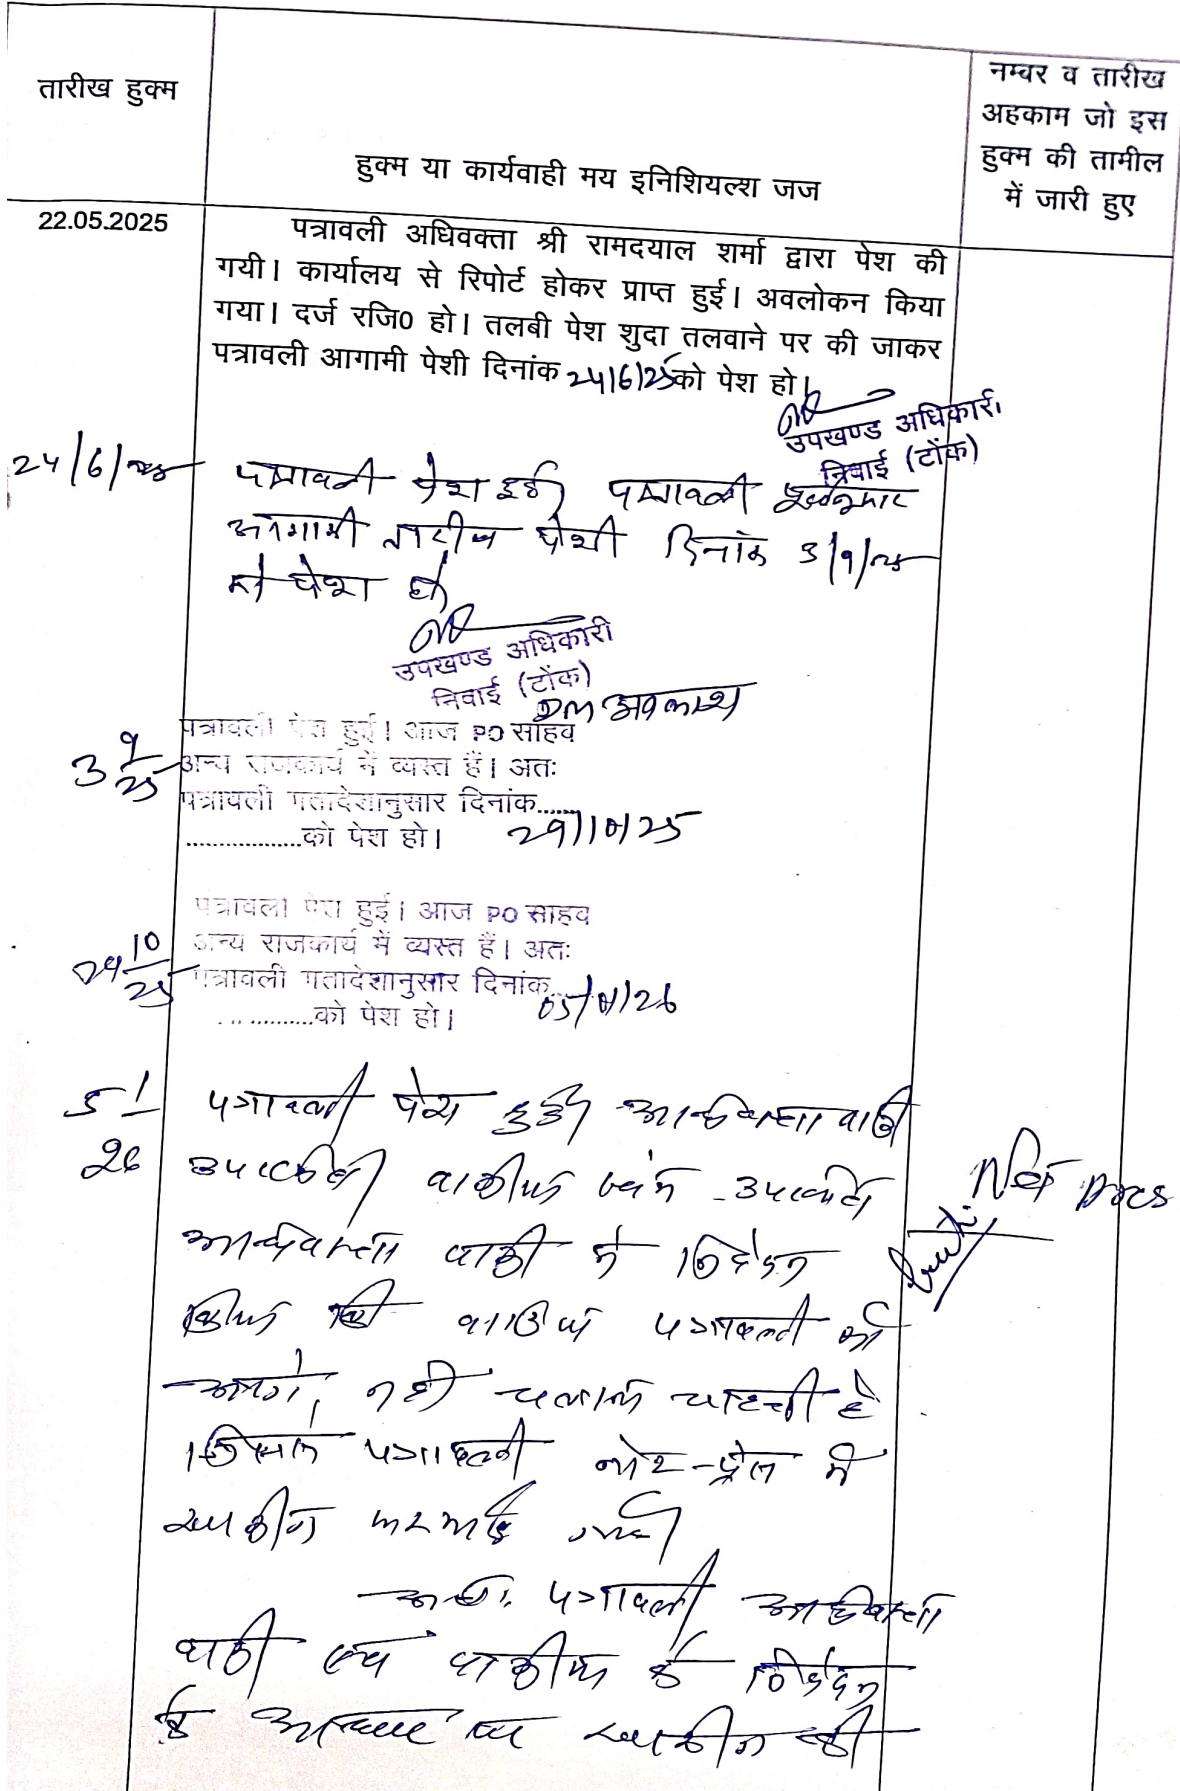 तारीख हुक्म
हुक्म या कार्यवाही मय इनिशियल्श जज
नम्बर व तारीख
अहकाम जो इस
हुक्म की तामील
में जारी हुए
22.05.2025
पत्रावली अधिवक्ता श्री रामदयाल शर्मा द्वारा पेश की
गयी। कार्यालय से रिपोर्ट होकर प्राप्त हुई। अवलोकन किया
गया। दर्ज रजि0 हो। तलबी पेश शुदा तलवाने पर की जाकर
पत्रावली आगामी पेशी दिनांक 24/6/25 को पेश हो।
उपखण्ड अधिकारी
निवाई (टोंक)
24/6/25 पत्रावली पेश हुई। पत्रावली पूर्वानुसार
आगामी तारीख पेशी दिनांक 3/9/25
को पेश हो
उपखण्ड अधिकारी
निवाई (टोंक)
अवकाश
3 9/25
पत्रावली पेश हुई। आज PO साहब
अन्य राजकार्य में व्यस्त हैं। अतः
पत्रावली गतादेशानुसार दिनांक.......
29/10/25
..................को पेश हो।
पत्रावली पेश हुई। आज PO साहब
29 10/25
अन्य राजकार्य में व्यस्त हैं। अतः
पत्रावली गतादेशानुसार दिनांक...
05/01/26
..............को पेश हो।
5 1/26
पत्रावली पेश हुई। अधिवक्ता वादी
उपस्थित। वादीया स्वंय उपस्थित
अधिवक्ता वादी ने निवेदन
किया कि वादिया पत्रावली को
आगे नही चलाना चाहती है
पत्रावली नोट-प्रेस में
खारीज फरमाई जावे।
अतः पत्रावली अधिवक्ता
वादी एवं वादीया के निवेदन
के आधार पर खारीज की